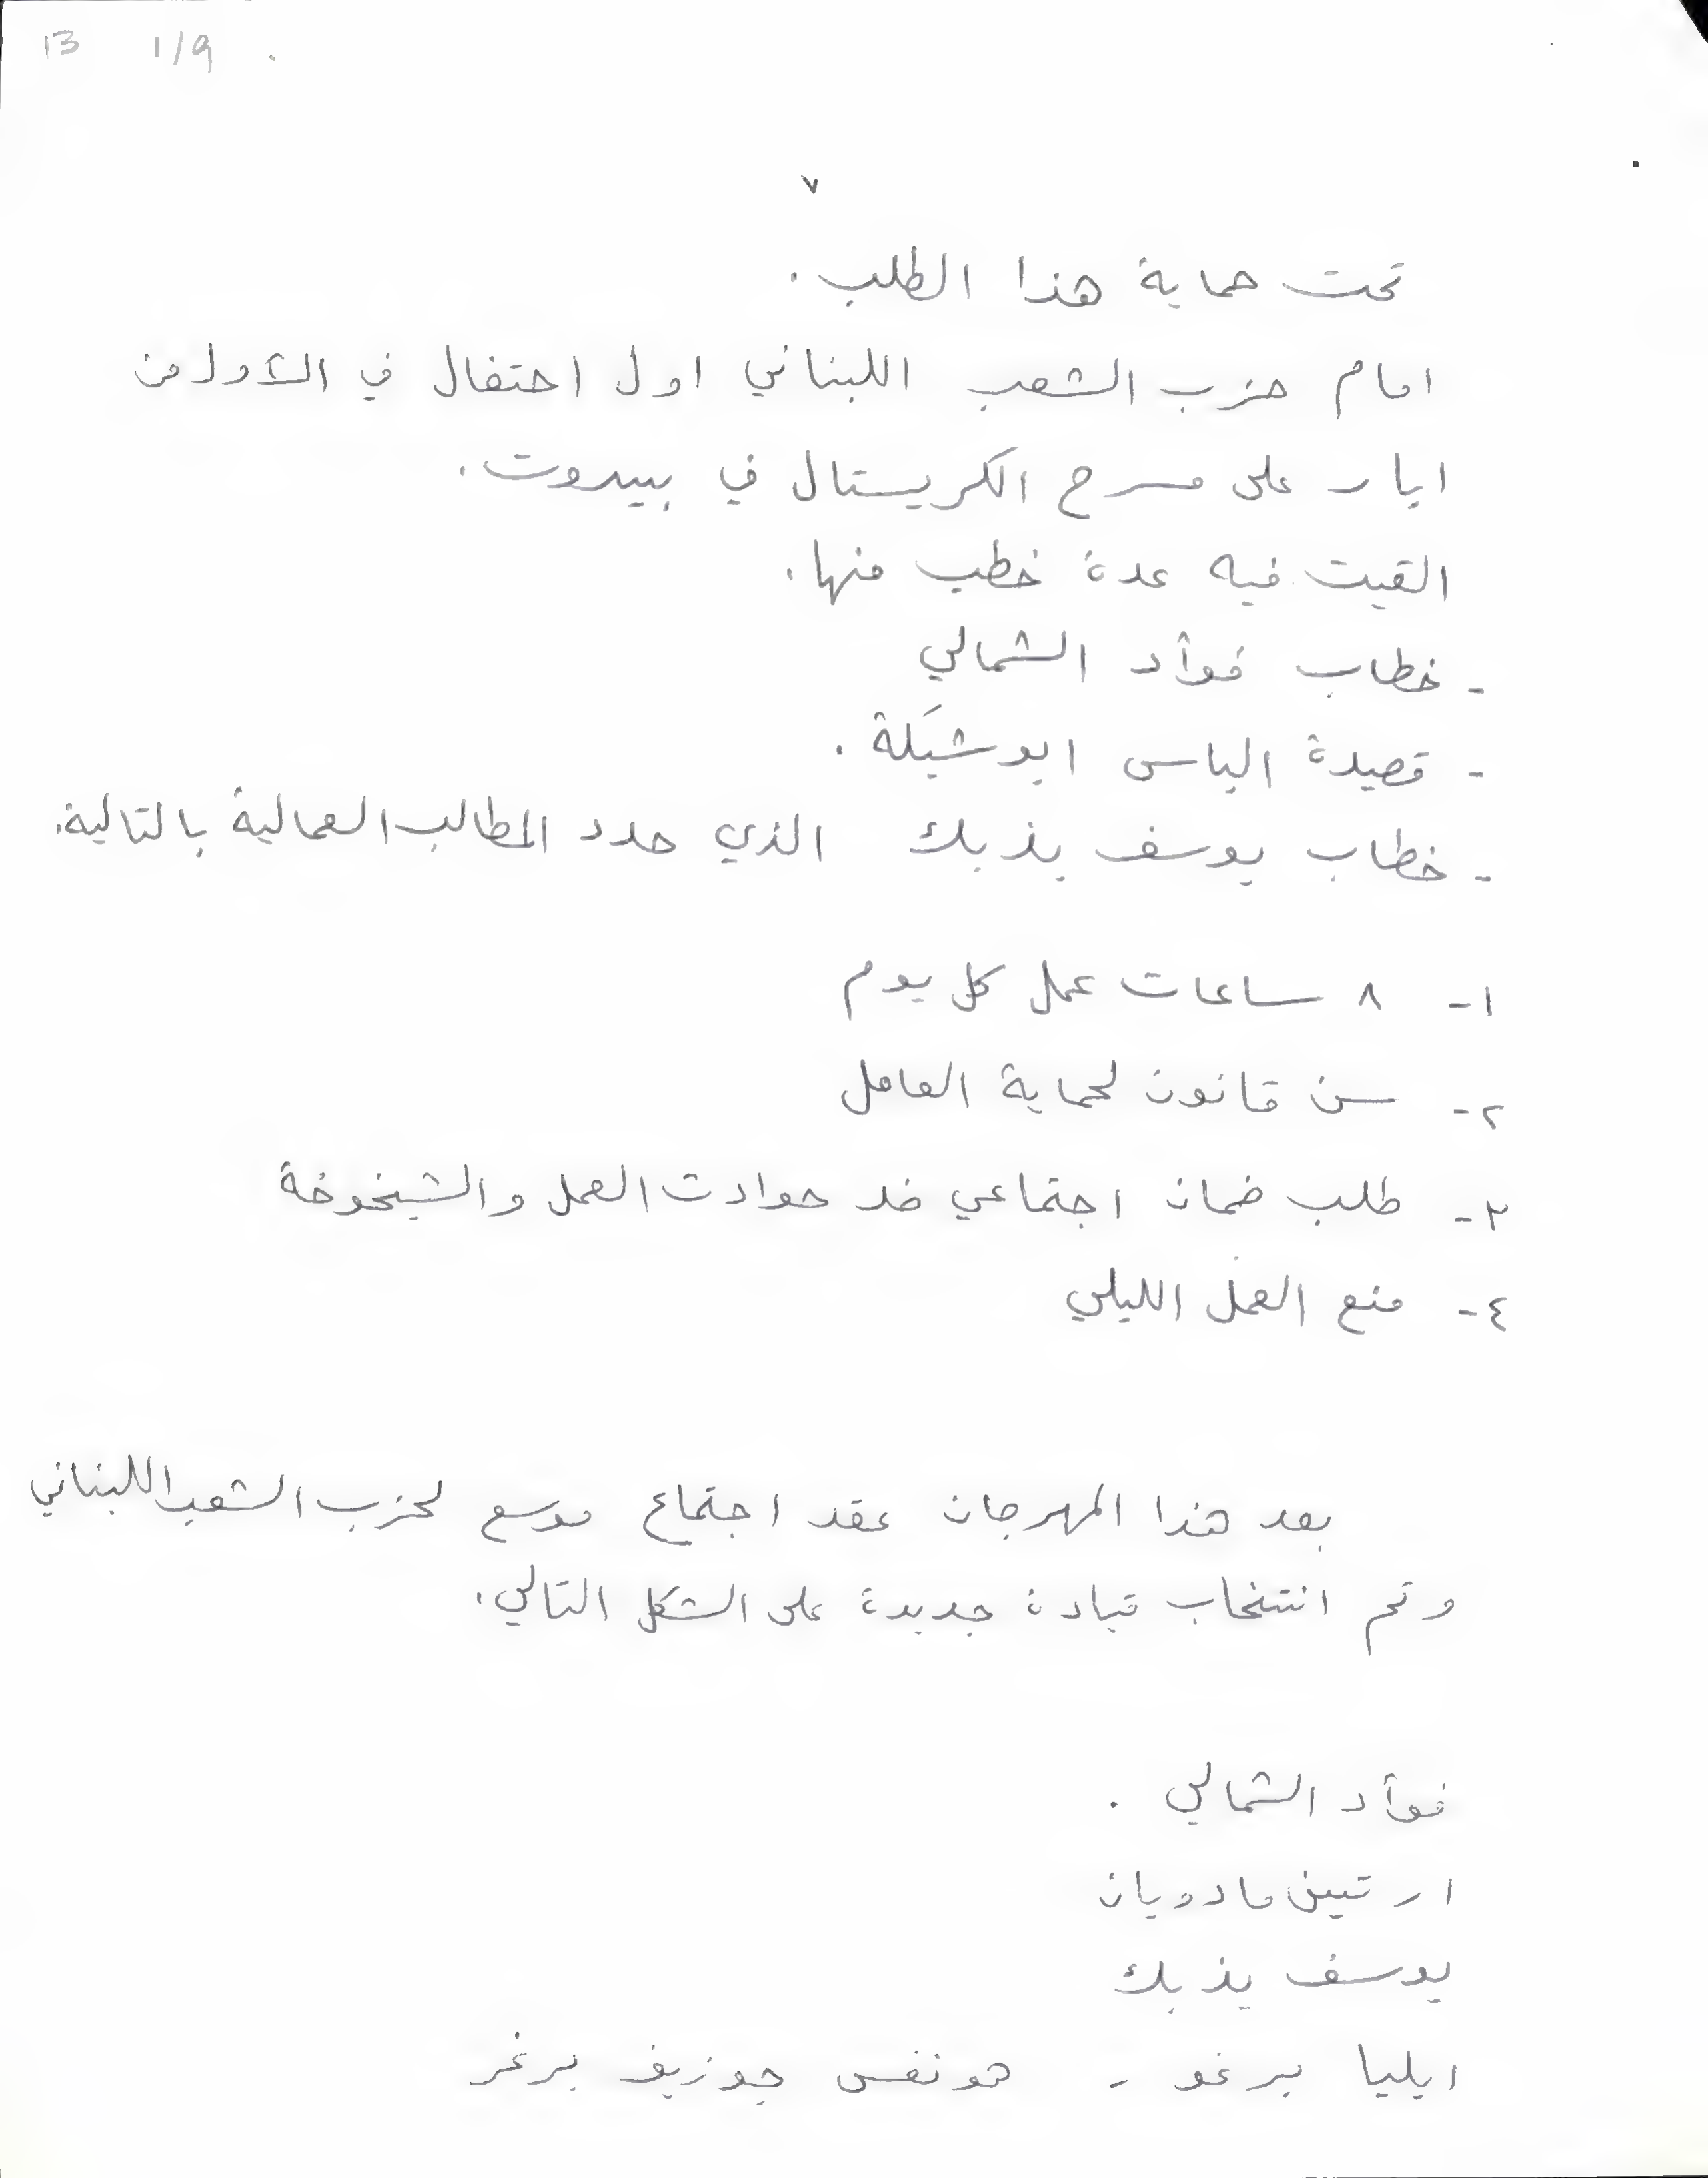 13 1/9
٧
تحت حماية هذا الطلب.
امام حزب الشعب اللبناني اول احتفال في الأول من
ايار على مسرح الكريستال في بيروت.
القيت فيه عدة خطب منها.
- خطاب فوأد الشمالي
- قصيدة الياس ابو شبكة.
- خطاب يوسف يذبك الذي حدد المطالب العمالية بالتالية.
١- ٨ ساعات عمل كل يوم
٢- سن قانون لحماية العامل
٣- طلب ضمان اجتماعي ضد حوادث العمل والشيخوخة
٤- منع العمل الليلي
بعد هذا المهرجان عقد اجتماع موسع لحزب الشعب اللبناني
وتم انتخاب قيادة جديدة على الشكل التالي.
فوأد الشمالي.
ارتين مادويان
يوسف يذبك
ايليا برغو - هو نفس جوزيف برغر